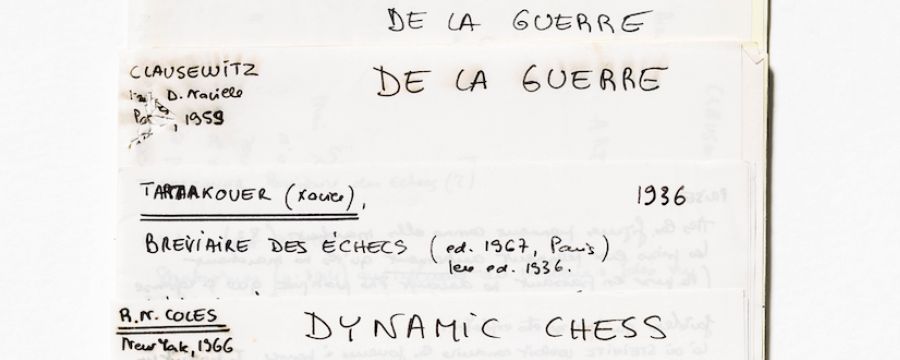 DE LA GUERRE
CLAUSEWITZ
DE LA GUERRE
D. Naville
, 1959
TARTAKOUER (Xavier),
1936
BREVIAIRE DES ECHECS (ed. 1967, Paris)
1ere ed. 1936.
R.N. COLES
DYNAMIC CHESS
New York, 1966